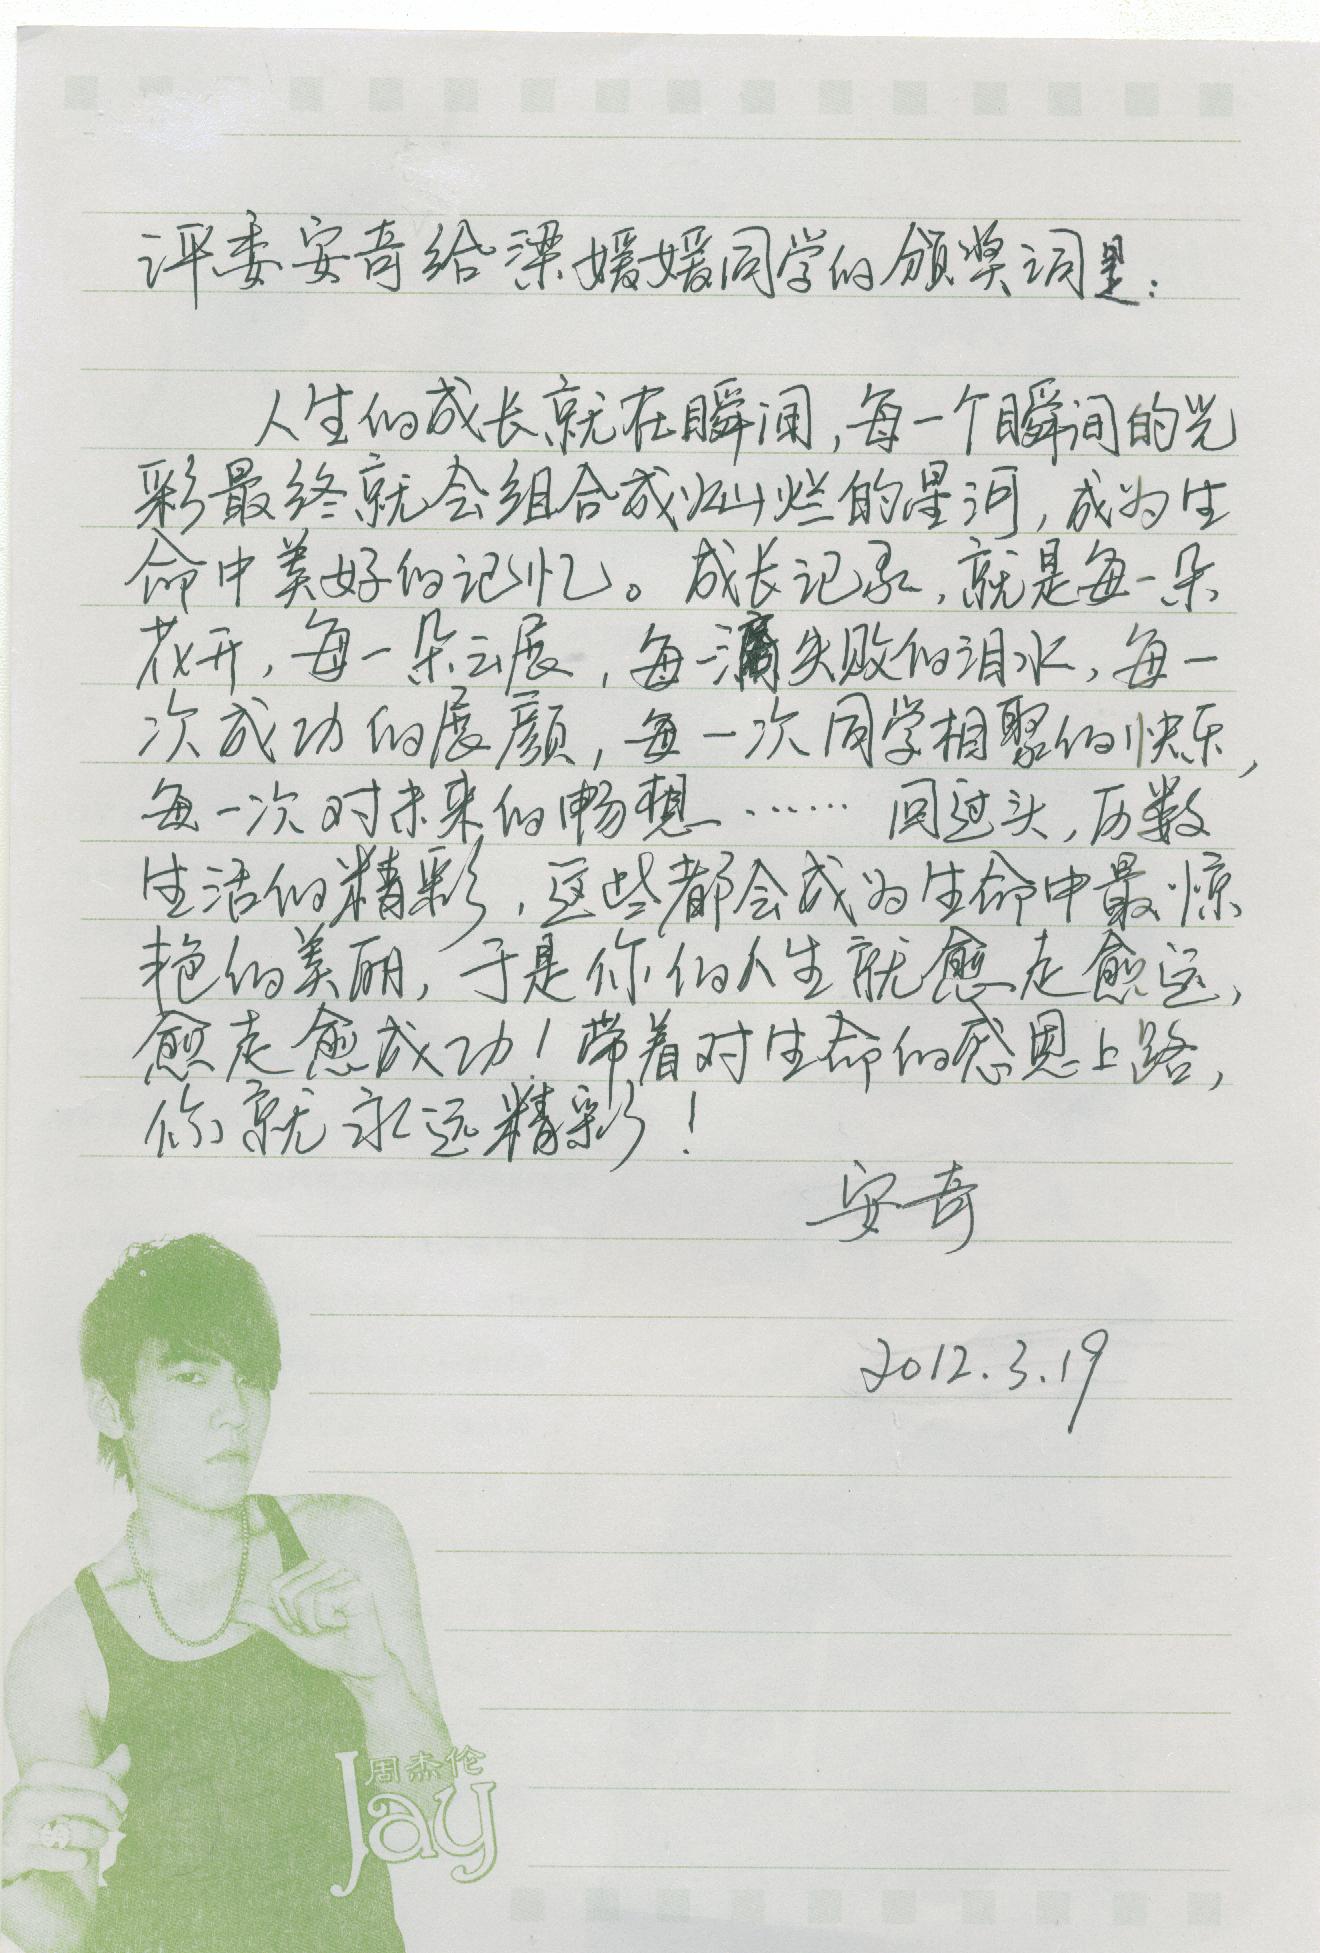 评委安奇给梁媛媛同学的颁奖词是:
人生的成长就在瞬间,每一个瞬间的光
彩最终就会组合成灿烂的星河,成为生
命中美好的记忆。成长记录,就是每一朵
花开,每一朵云展,每一滴失败的泪水,每一
次成功的展颜,每一次同学相聚的快乐,
每一次对未来的畅想……回过头,历数
生活的精彩,这些都会成为生命中最惊
艳的美丽,于是你的人生就愈走愈远,
愈走愈成功!带着对生命的感恩上路,
你就永远精彩!
安奇
2012.3.19
周杰伦
Jay